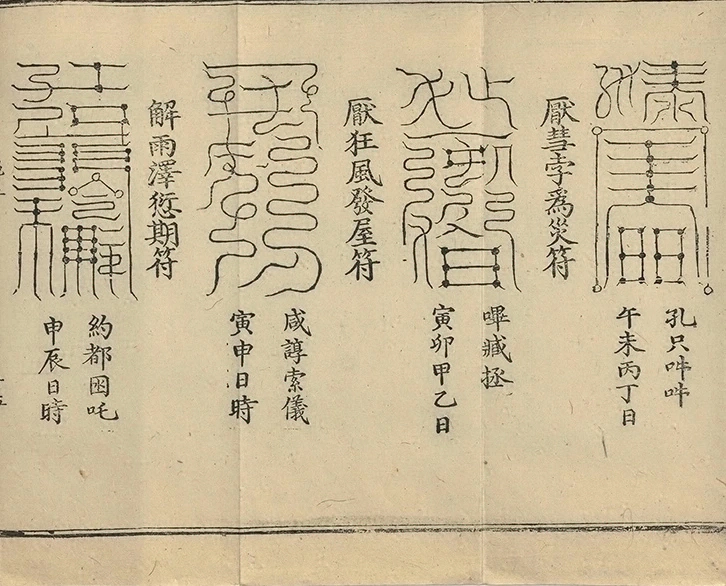 孔只吽吽
午未丙丁日
厭彗孛爲災符
嗶臧拯
寅卯甲乙日
厭狂風發屋符
咸諄索儀
寅申日時
解雨澤愆期符
約都困吒
申辰日時